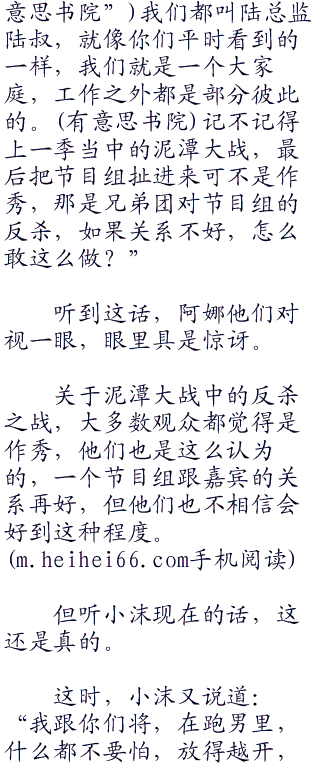 意思书院”)我们都叫陆总监
陆叔，就像你们平时看到的
一样，我们就是一个大家
庭，工作之外都是部分彼此
的。(有意思书院)记不记得
上一季当中的泥潭大战，最
后把节目组扯进来可不是作
秀，那是兄弟团对节目组的
反杀，如果关系不好，怎么
敢这么做？”
听到这话，阿娜他们对
视一眼，眼里具是惊讶。
关于泥潭大战中的反杀
之战，大多数观众都觉得是
作秀，他们也是这么认为
的，一个节目组跟嘉宾的关
系再好，但他们也不相信会
好到这种程度。
(m.heihei66.com手机阅读)
但听小沫现在的话，这
还是真的。
这时，小沫又说道：
“我跟你们将，在跑男里，
什么都不要怕，放得越开，